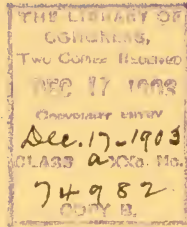 THE LIBRARY OF
CONGRESS,
TWO COPIES RECEIVED
DEC 17 1903
COPYRIGHT ENTRY
Dec. 17-1903
CLASS a XXc. No.
74982
COPY B.